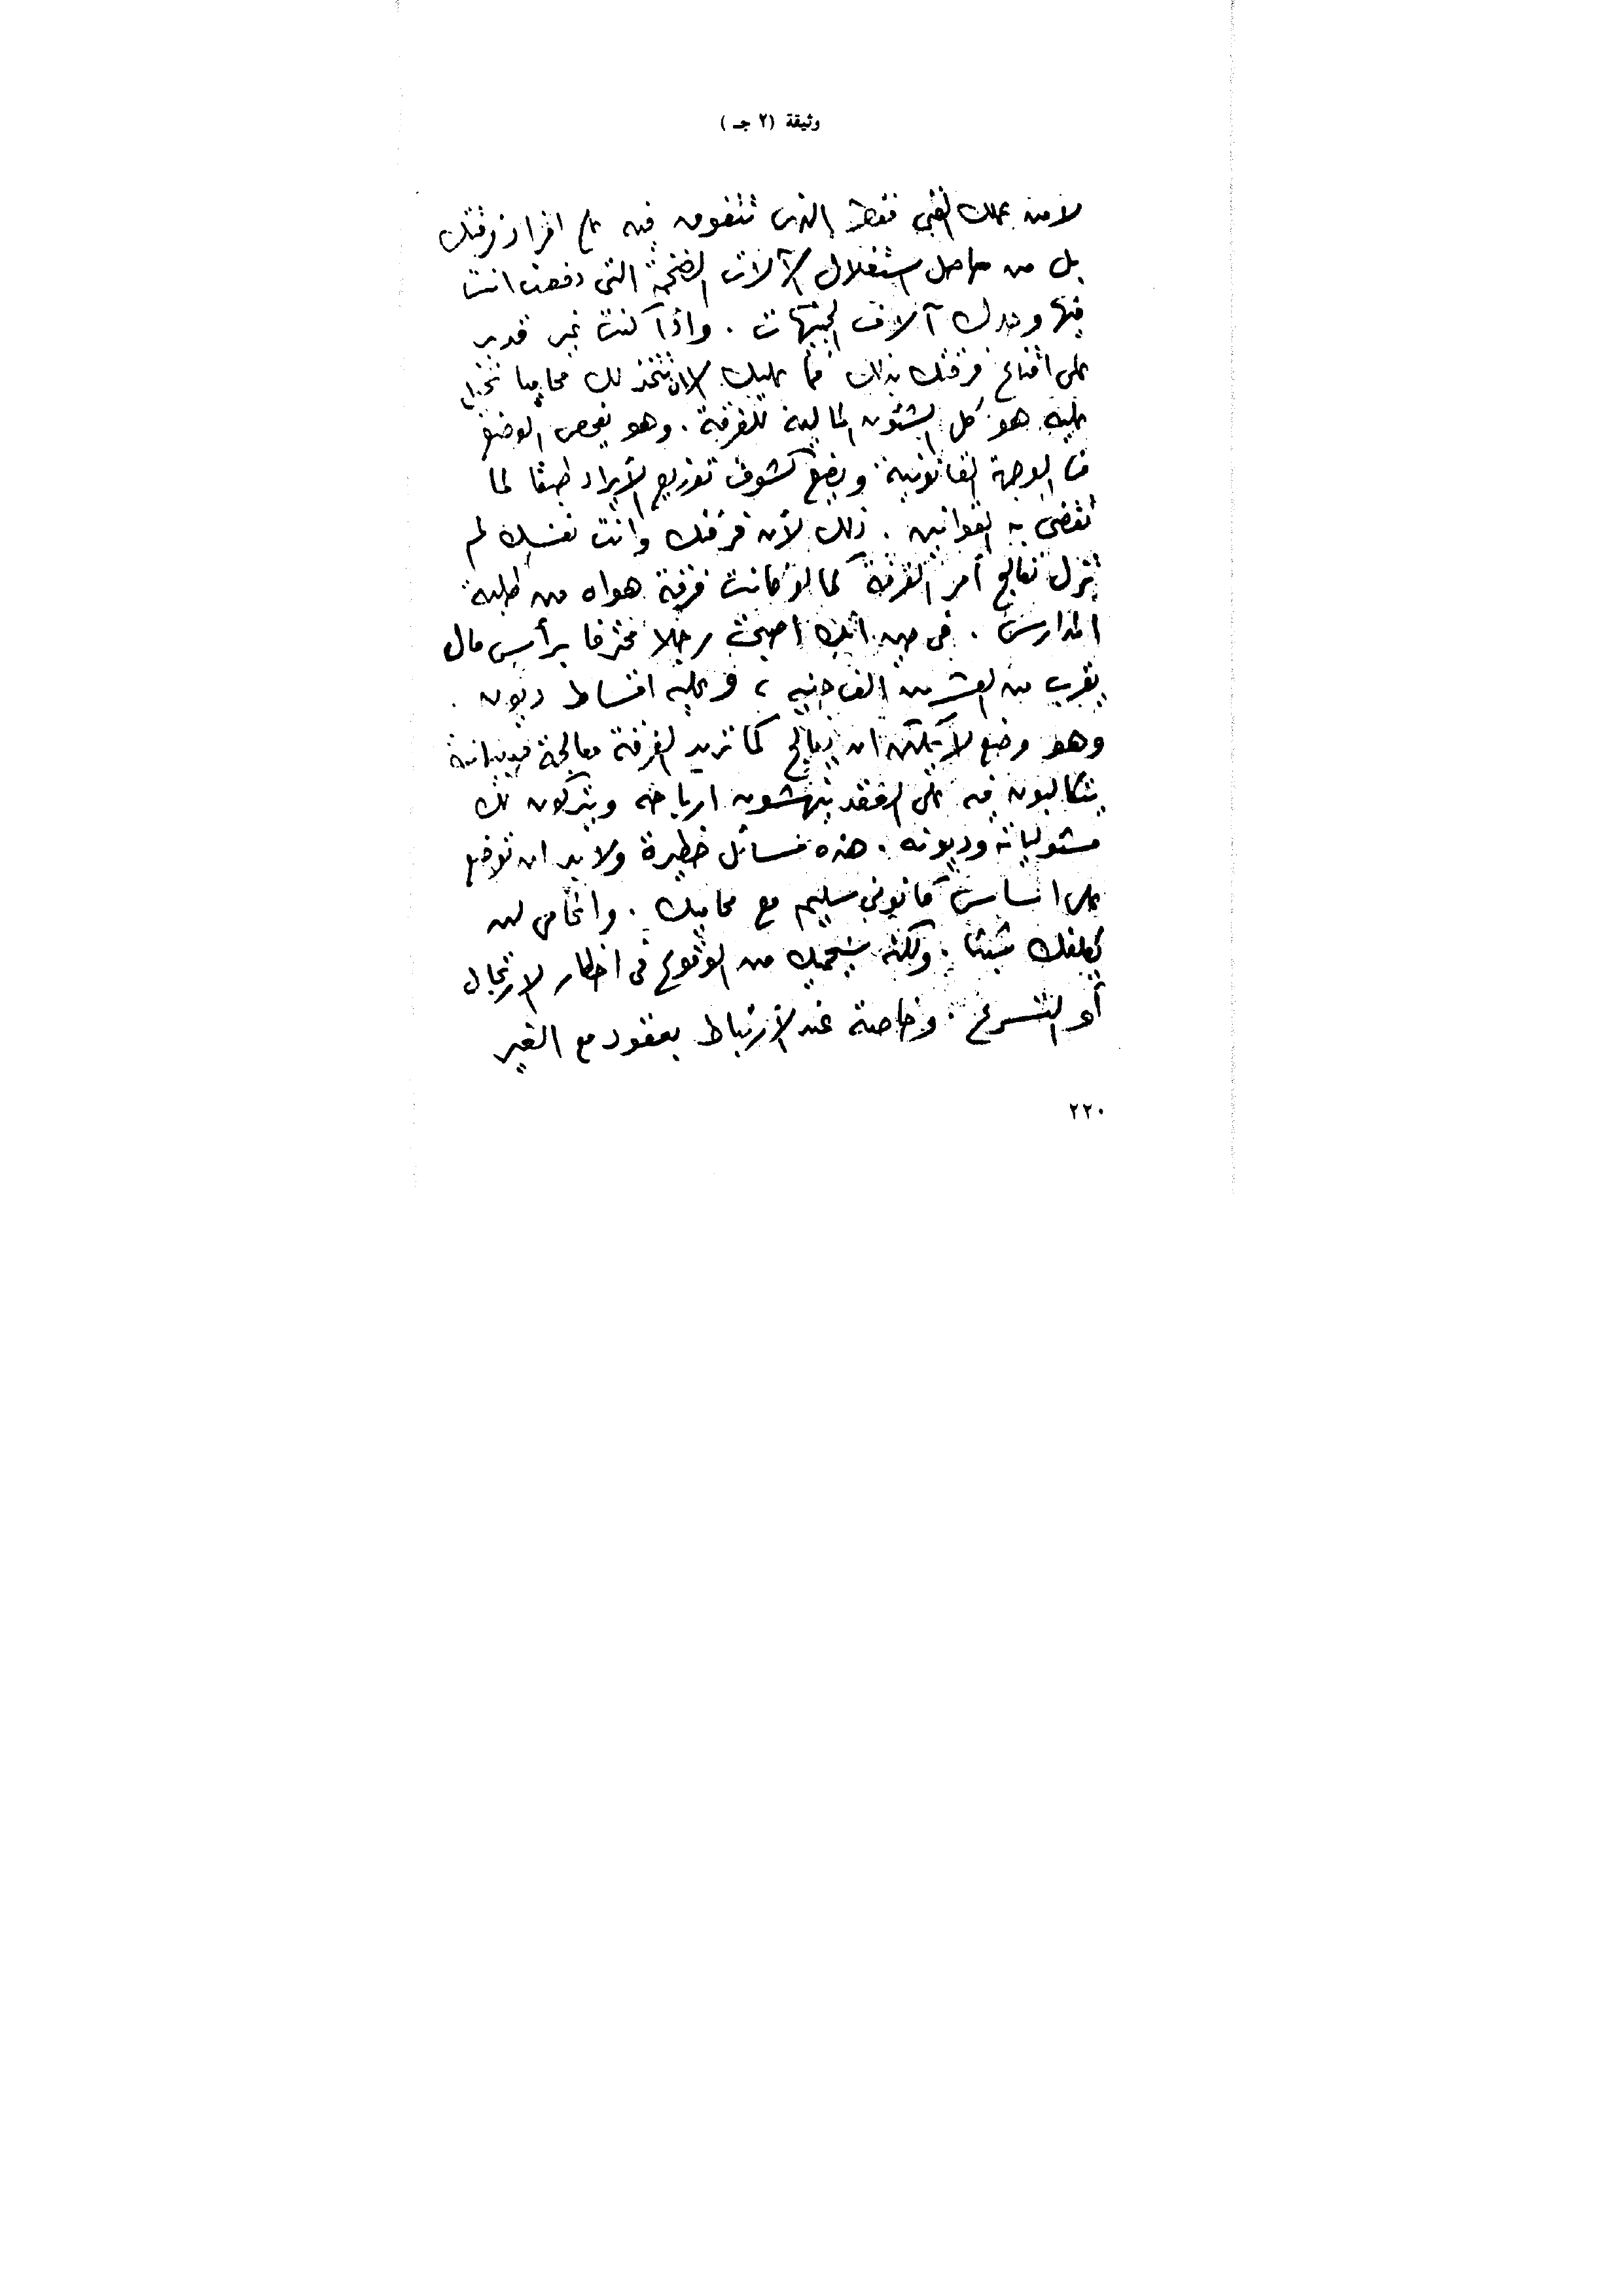 وثيقة (٢ جـ)
لا من عملك الفني فقط الذى تتفوق فيه مع افراد فرقتك
بل من حاصل استغلال الآلات الضخمة التى دفعت انت
فيها وحدك آلاف الجنيهات . واذا كنت غير قدير
على اقناع فرقتك بذلك فما عليك الا ان تتخذ لك محاميا تحيل
عليه هو كل الشئون المالية للفرقة . وهو يفحص الوضع
من الوجهة القانونية ويضع كشوف توزيع الايراد طبقا لما
تقضى به القوانين . ذلك لأن فرقتك وانت نفسك لم
تزل تعالج أمر الفرقة كما لو كانت فرقة هواه من طلبة
المدارس . فى حين انك اصبحت رجلا محترفا برأس مال
يقرب من العشرين الف جنيه ، وعليه اقساط ديون .
وهو وضع لا يمكن ان يعالج كما تريد الفرقة معالجة
يتكالبون فيه على النقد ينهشون ارباحه ويتركون لك
مسئولياته وديونه . هذه مسائل خطيرة ولا بد ان توضع
على اساس قانونى سليم مع محاميك . والمحامى لن
يكلفك شيئا . ولكنه سيحميك من الوقوع فى اخطار الارتجال
أو التسرع . وخاصة عند الارتباط بعقود مع الغير
٢٢٠